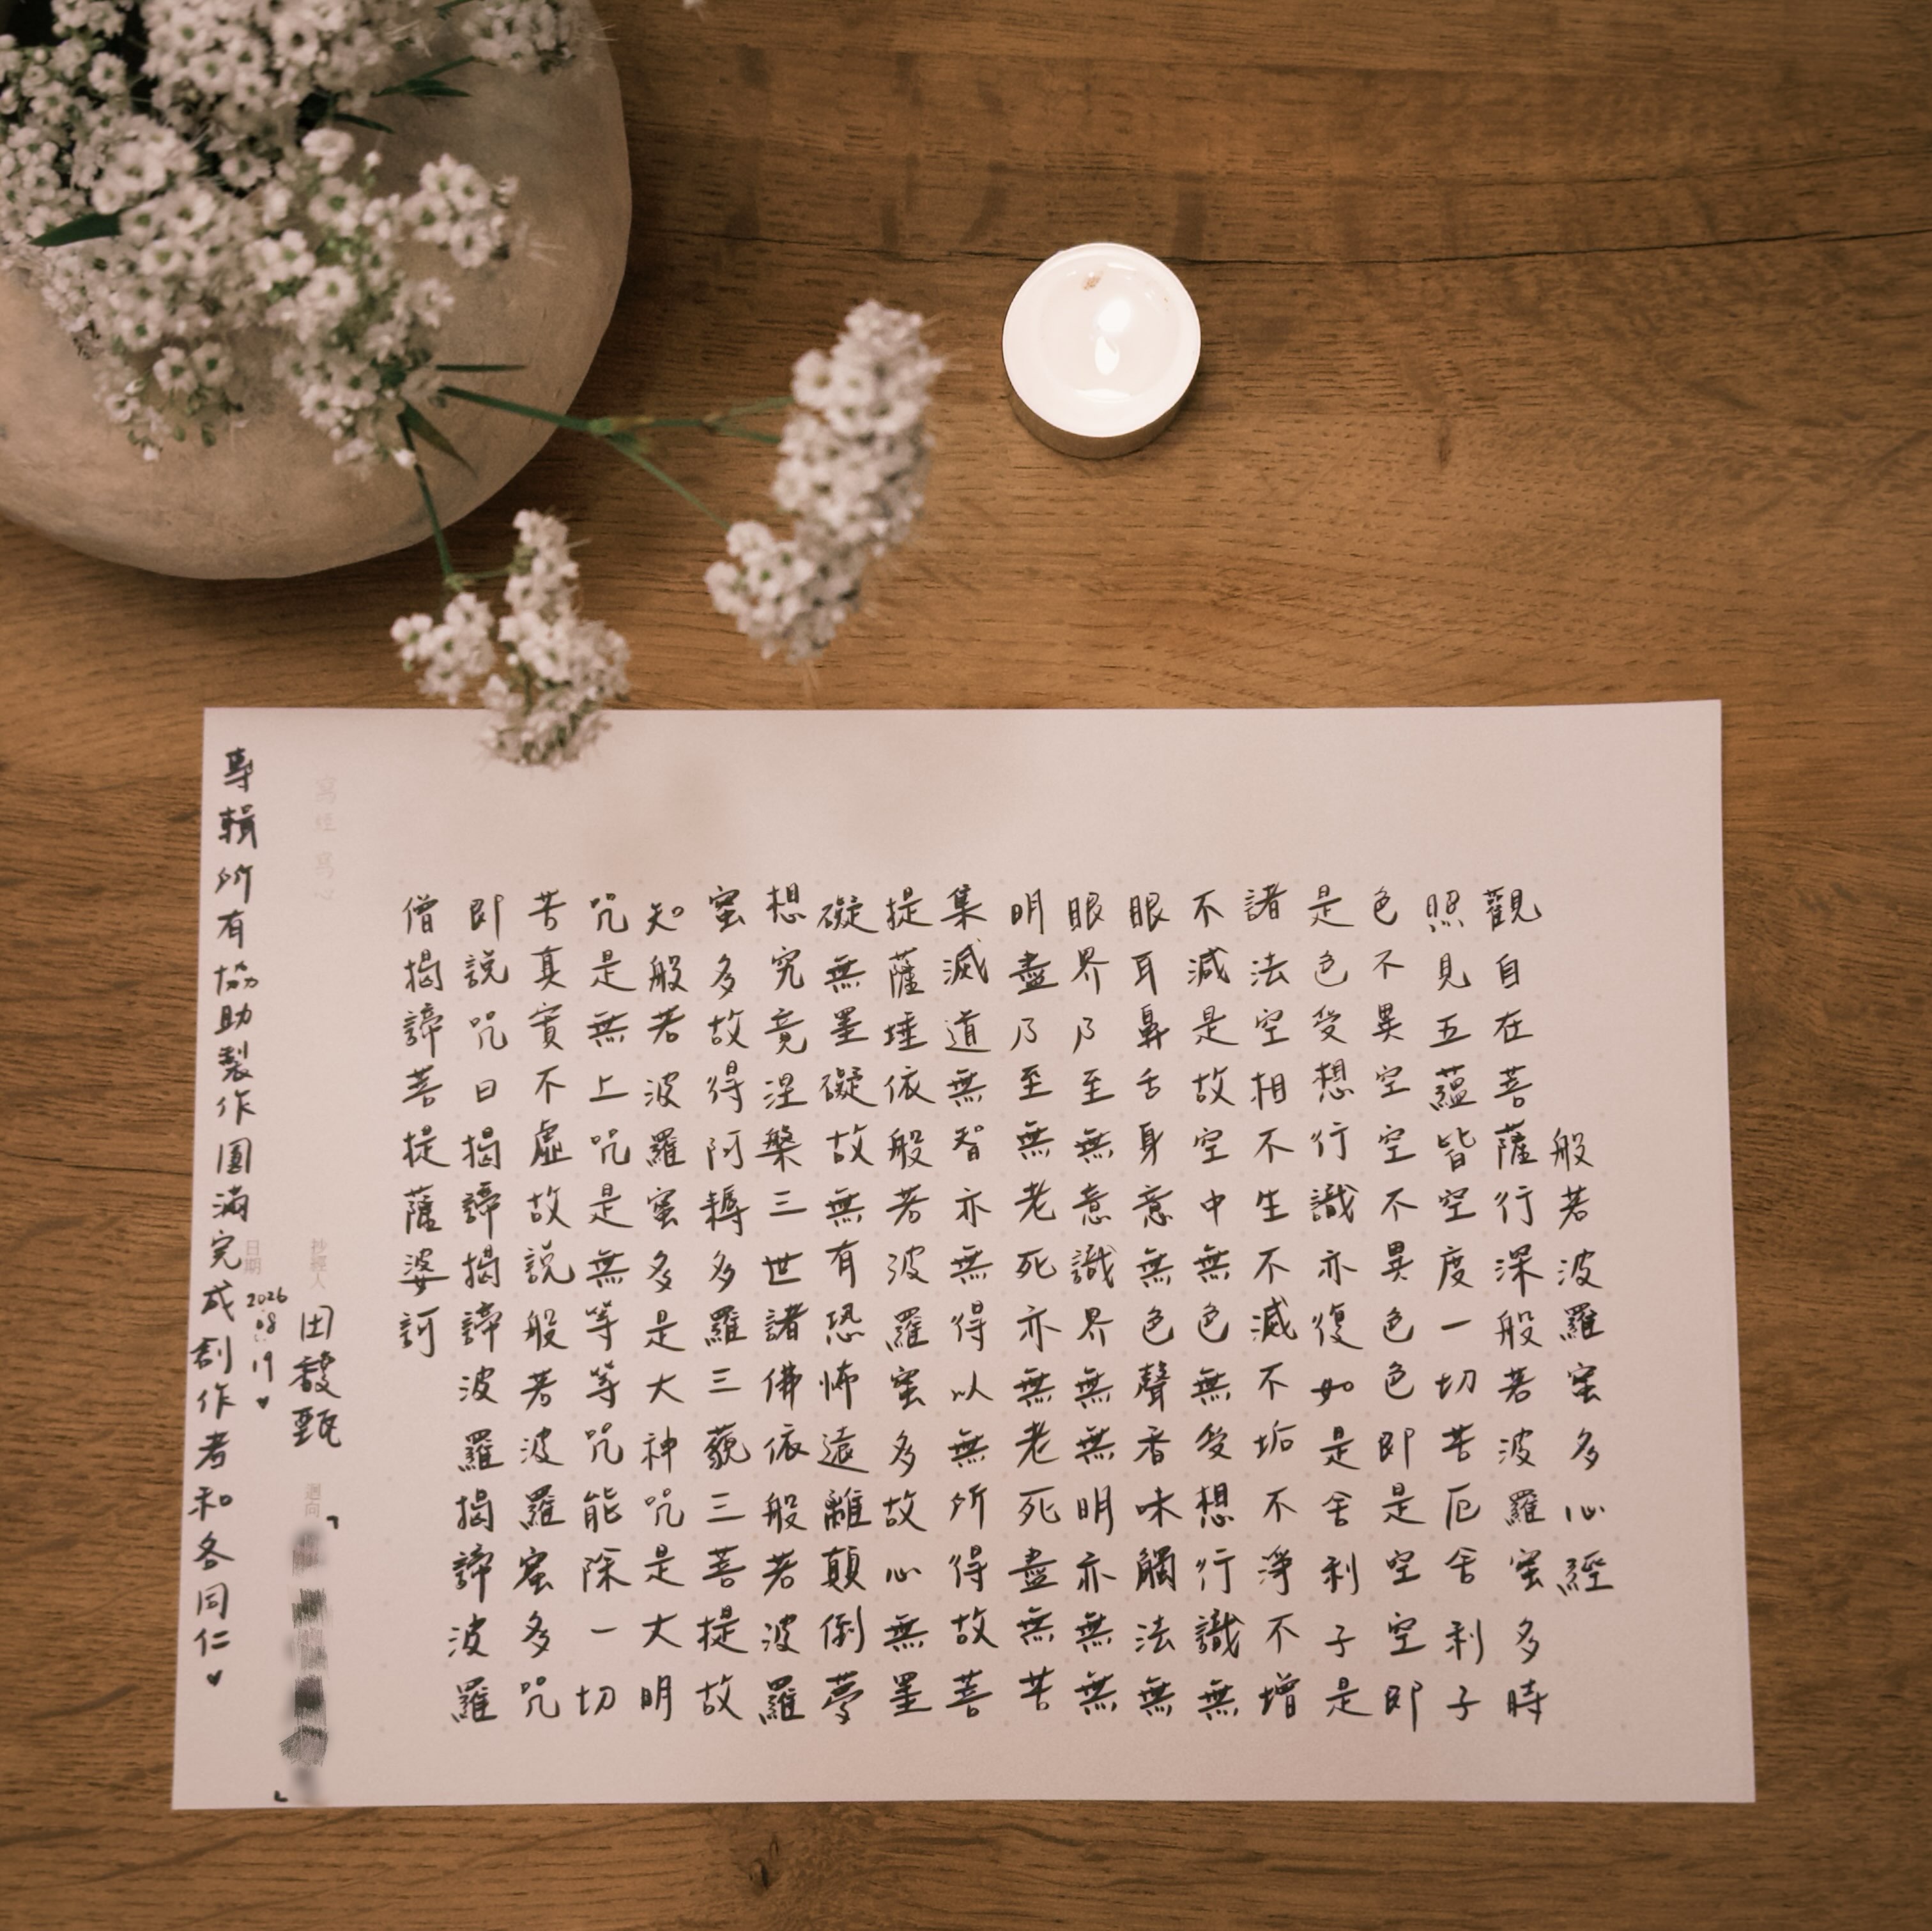 般若波羅蜜多心經
觀自在菩薩行深般若波羅蜜多時
照見五蘊皆空度一切苦厄舍利子
色不異空空不異色色即是空空即
是色受想行識亦復如是舍利子是
諸法空相不生不滅不垢不淨不增
不減是故空中無色無受想行識無
眼耳鼻舌身意無色聲香味觸法無
眼界乃至無意識界無無明亦無無
明盡乃至無老死亦無老死盡無苦
集滅道無智亦無得以無所得故菩
提薩埵依般若波羅蜜多故心無罣
礙無罣礙故無有恐怖遠離顛倒夢
想究竟涅槃三世諸佛依般若波羅
蜜多故得阿耨多羅三藐三菩提故
知般若波羅蜜多是大神咒是大明
咒是無上咒是無等等咒能除一切
苦真實不虛故說般若波羅蜜多咒
即說咒曰揭諦揭諦波羅揭諦波羅
僧揭諦菩提薩婆訶
寫經 寫心
抄經人 田馥甄
迴向「」
日期 2026.08.19♥
專輯所有協助製作圓滿完成創作者和各同仁♥